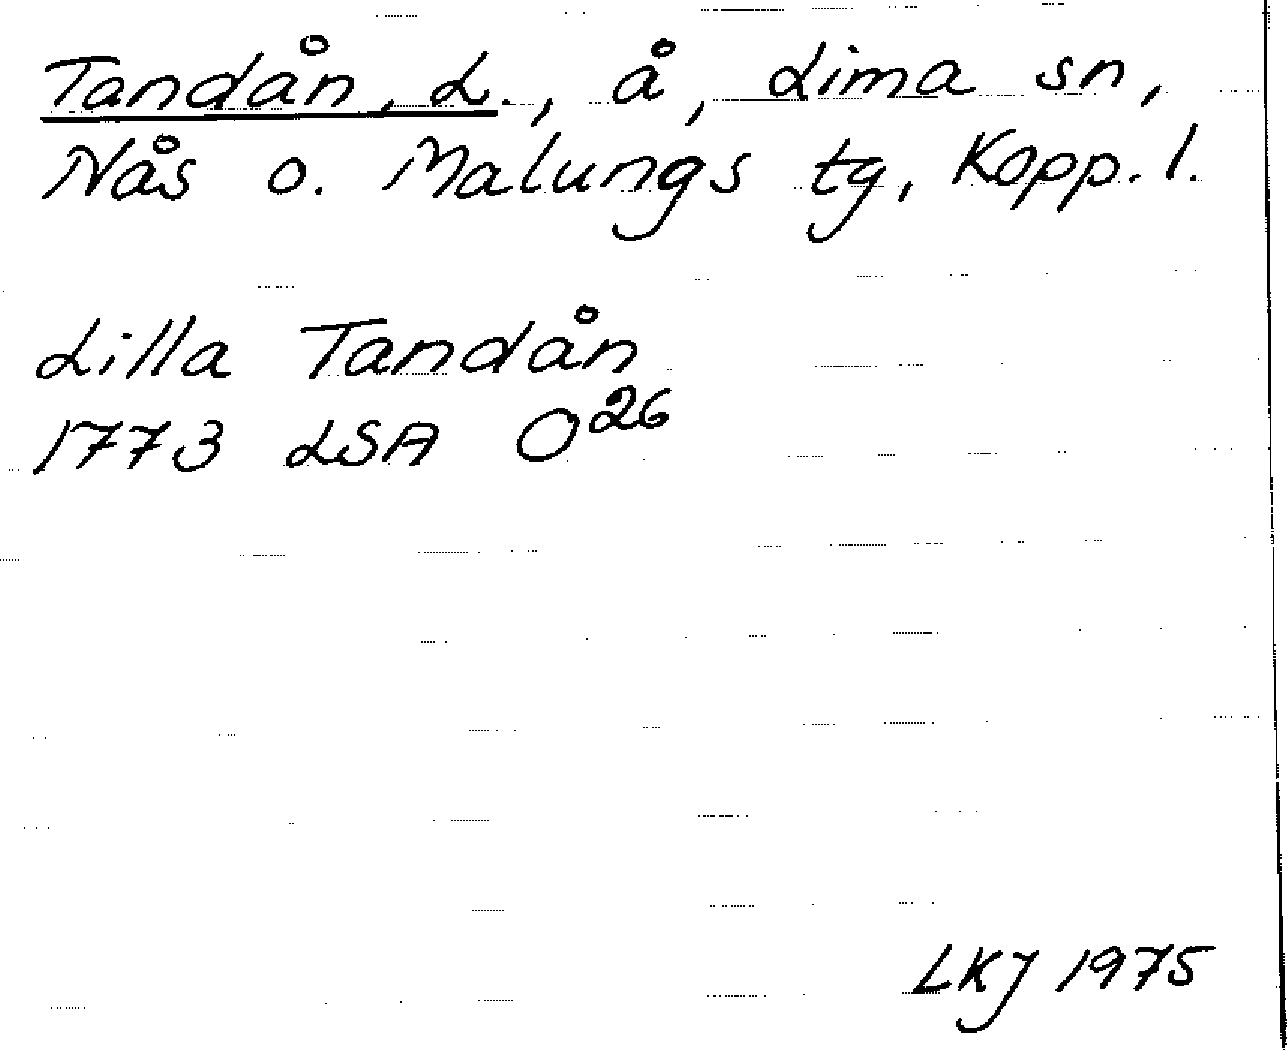 Tandån, L., å, Lima sn,
Nås o. Malungs tg, Kopp. l.
Lilla Tandån
1773 LSA O²⁶
LKJ 1975